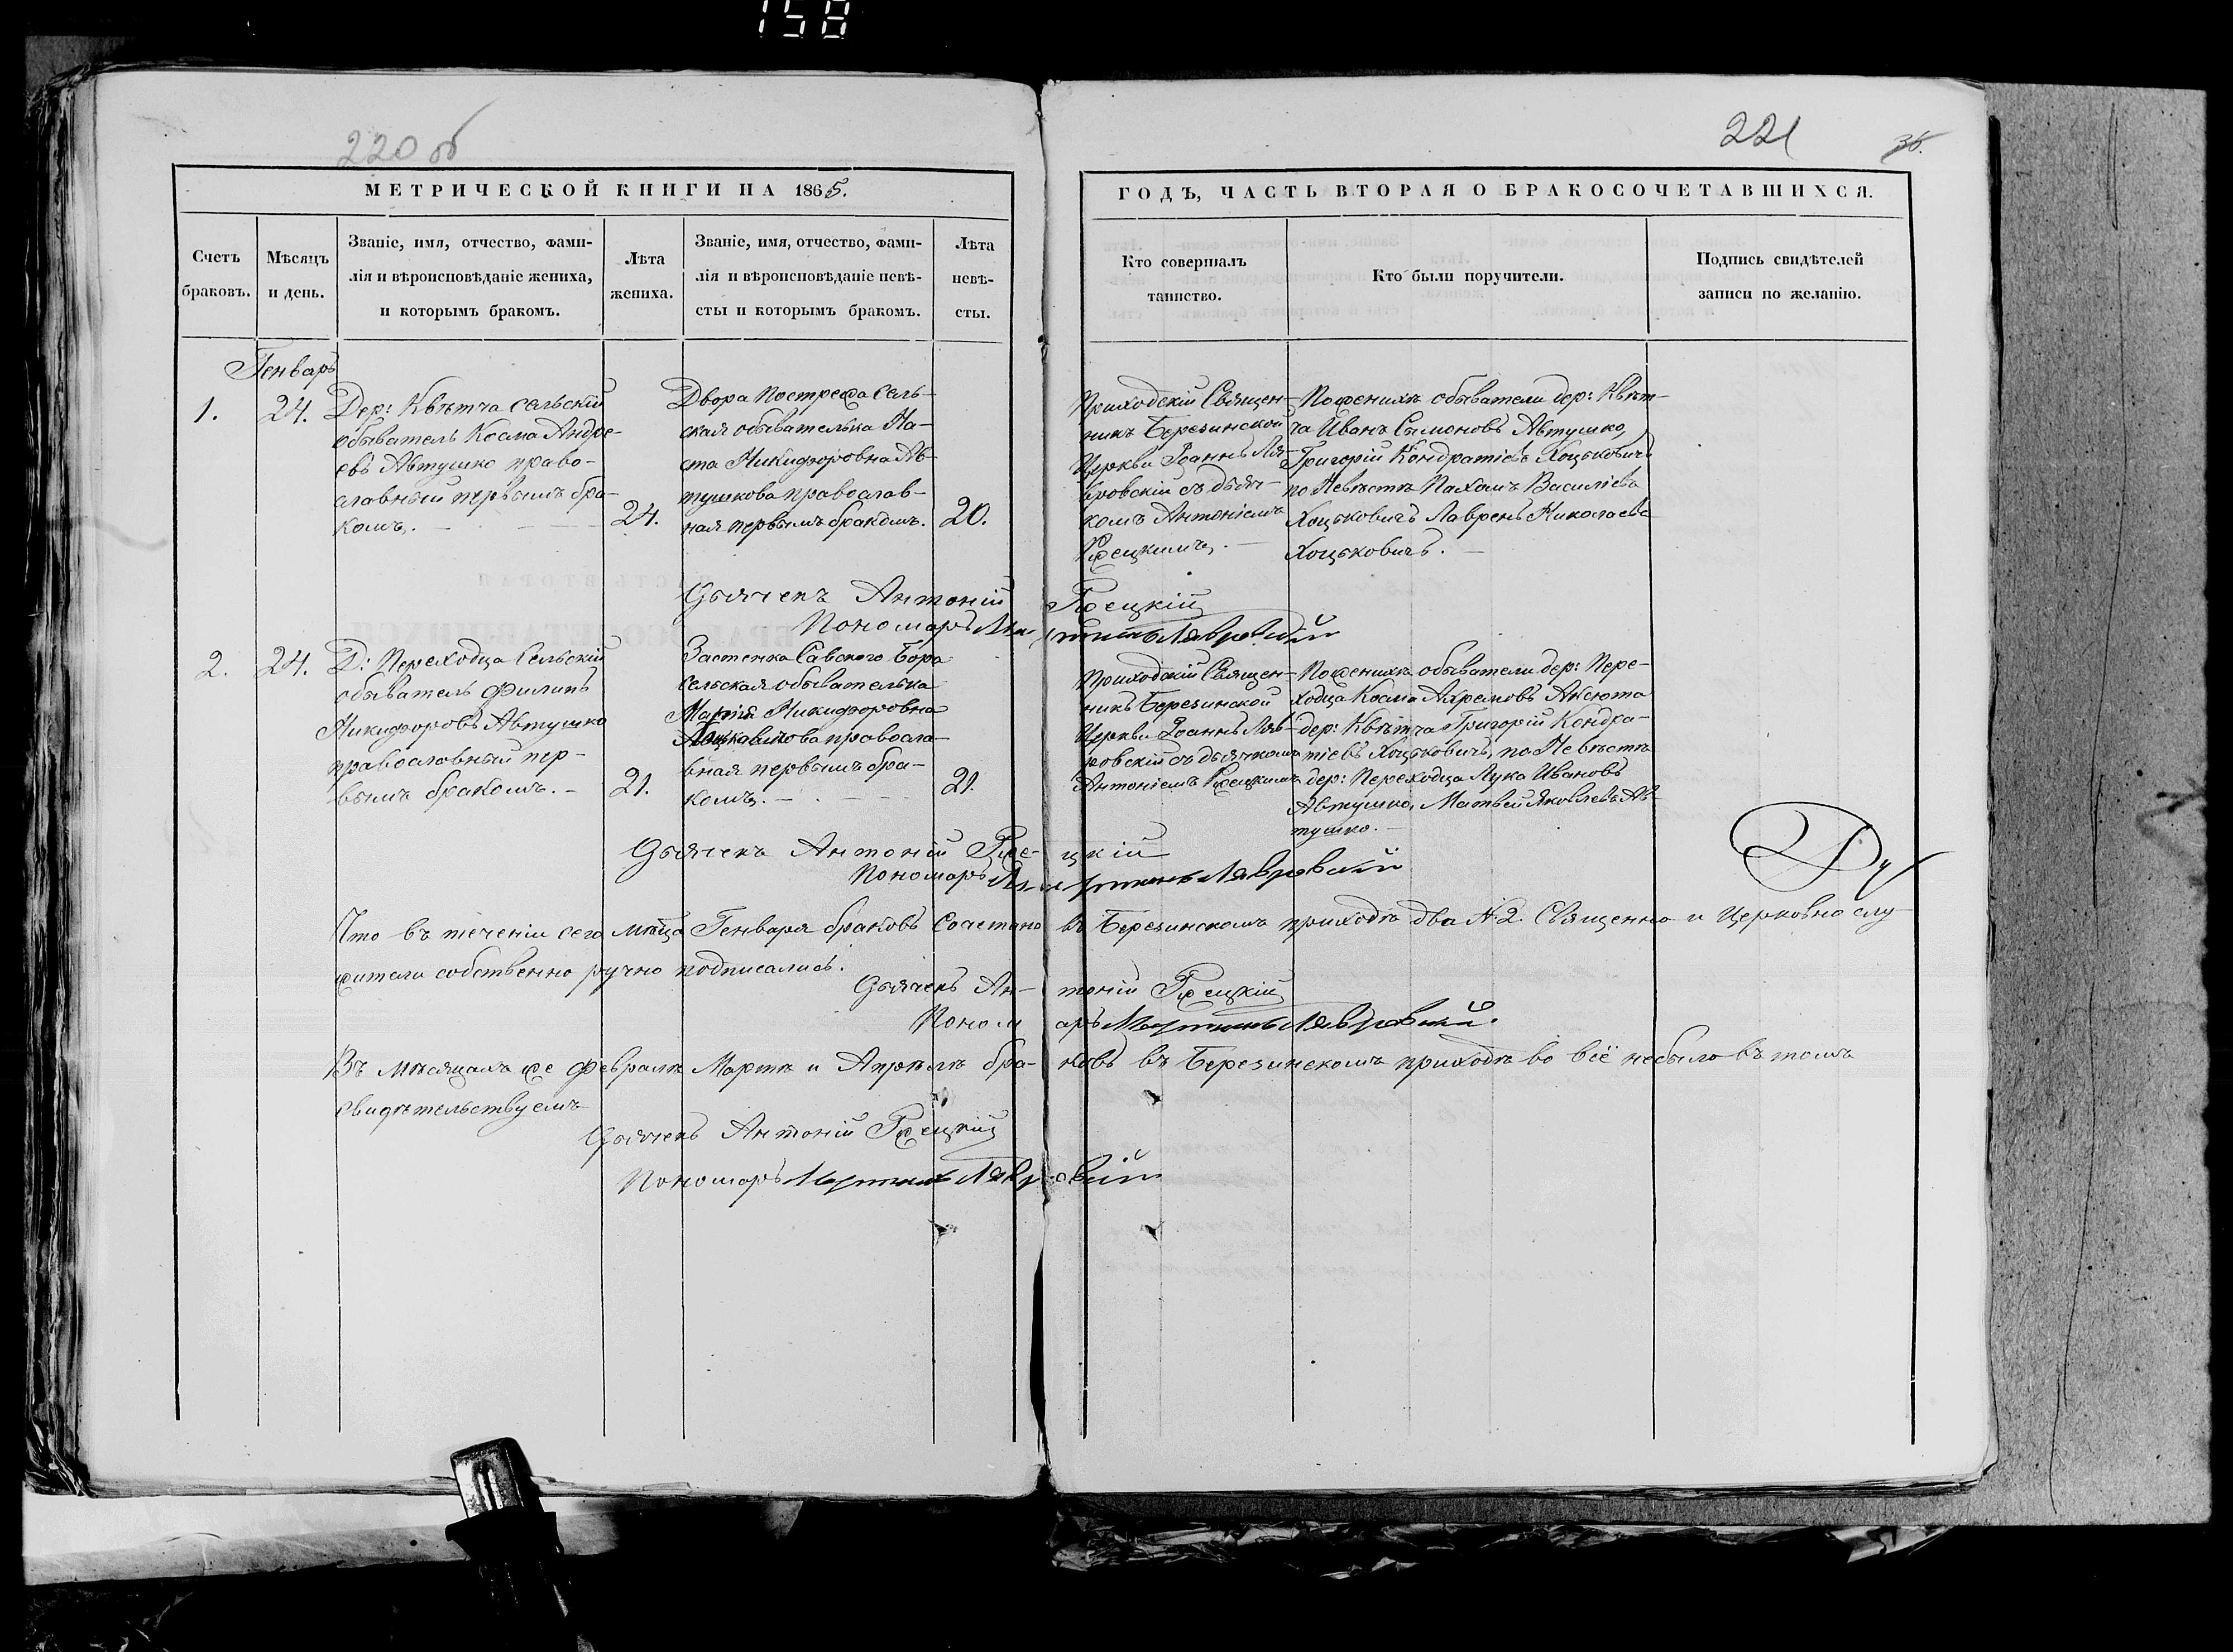 158
220 об
221
36.
МЕТРИЧЕСКОЙ КНИГИ НА 1865.
ГОДЪ, ЧАСТЬ ВТОРАЯ О БРАКОСОЧЕТАВШИХСЯ.
Счетъ
браковъ.
Мѣсяцъ
и день.
Званіе, имя, отчество, фами-
лія и вѣроисповѣданіе жениха,
и которымъ бракомъ.
Лѣта
жениха.
Званіе, имя, отчество, фами-
лія и вѣроисповѣданіе невѣ-
сты и которымъ бракомъ.
Лѣта
невѣ-
сты.
Кто совершалъ
таинство.
Кто были поручители.
Подпись свидѣтелей
записи по желанію.
Генварь
1.
24.
Дер: Квѣтча сельскій
обыватель Косма Андре-
евъ Автушко право-
славный первымъ бра-
комъ.
24.
Двора Пострежа сель-
ская обывателька На-
ста Никифоровна Ав-
тушкова православ-
ная первымъ бракомъ.
20.
Приходскій Священ-
никъ Березинской
Церкви Іоаннъ Ляв-
ровскій съ дьяч-
комъ Антоніемъ
Ржецкимъ.
По женихѣ обыватели дер: Квѣт-
ча Иванъ Сымоновъ Автушко,
Григорій Кондратіевъ Хоцьковичъ
по Невѣстѣ Пахомъ Василіевъ
Хоцьковичъ Лавренъ Николаевъ
Хоцьковичъ.
Дьячекъ Антоній Ржецкій
Пономарь Мартинъ Лявровскій
2.
24.
Д: Переходца Сельскій
обыватель Филипъ
Никифоровъ Автушко
православный пер-
вымъ бракомъ.
21.
Застенка Савского Бора
сельская обывателька
Марія Никифоровна
православ-
вная первымъ бра-
комъ.
21.
Приходскій Священ-
никъ Березинской
Церкви Іоаннъ Ляв-
ровскій съ дьячкомъ
Антоніемъ Ржецкимъ
По женихѣ обыватели дер: Пере-
ходца Косма Ахремовъ Аксюта
дер: Квѣтча Григорій Кондра-
тіевъ Хоцьковичъ, по Невѣстѣ
дер: Переходца Лука Ивановъ
Автушко, Матвей Яковлевъ Ав-
тушко.
Дьячекъ Антоній Ржецкій
Пономарь Мартинъ Лявровскій
Что въ теченіи сего мѣсца Генваря браковъ состояно въ Березинскомъ приходѣ два № 2. Священно и Церковно слу-
жители собственно ручно подписались.
Дьячекъ Антоній Ржецкій
Пономарь Мартинъ Лявровскій.
Въ мѣсяцахъ же Февралѣ Мартѣ и Апрѣлѣ бра-ковъ въ Березинскомъ приходѣ во всё небыло въ томъ
свидѣтельствуемъ
Дьячекъ Антоній Ржецкій
Пономарь Мартинъ Лявровскій